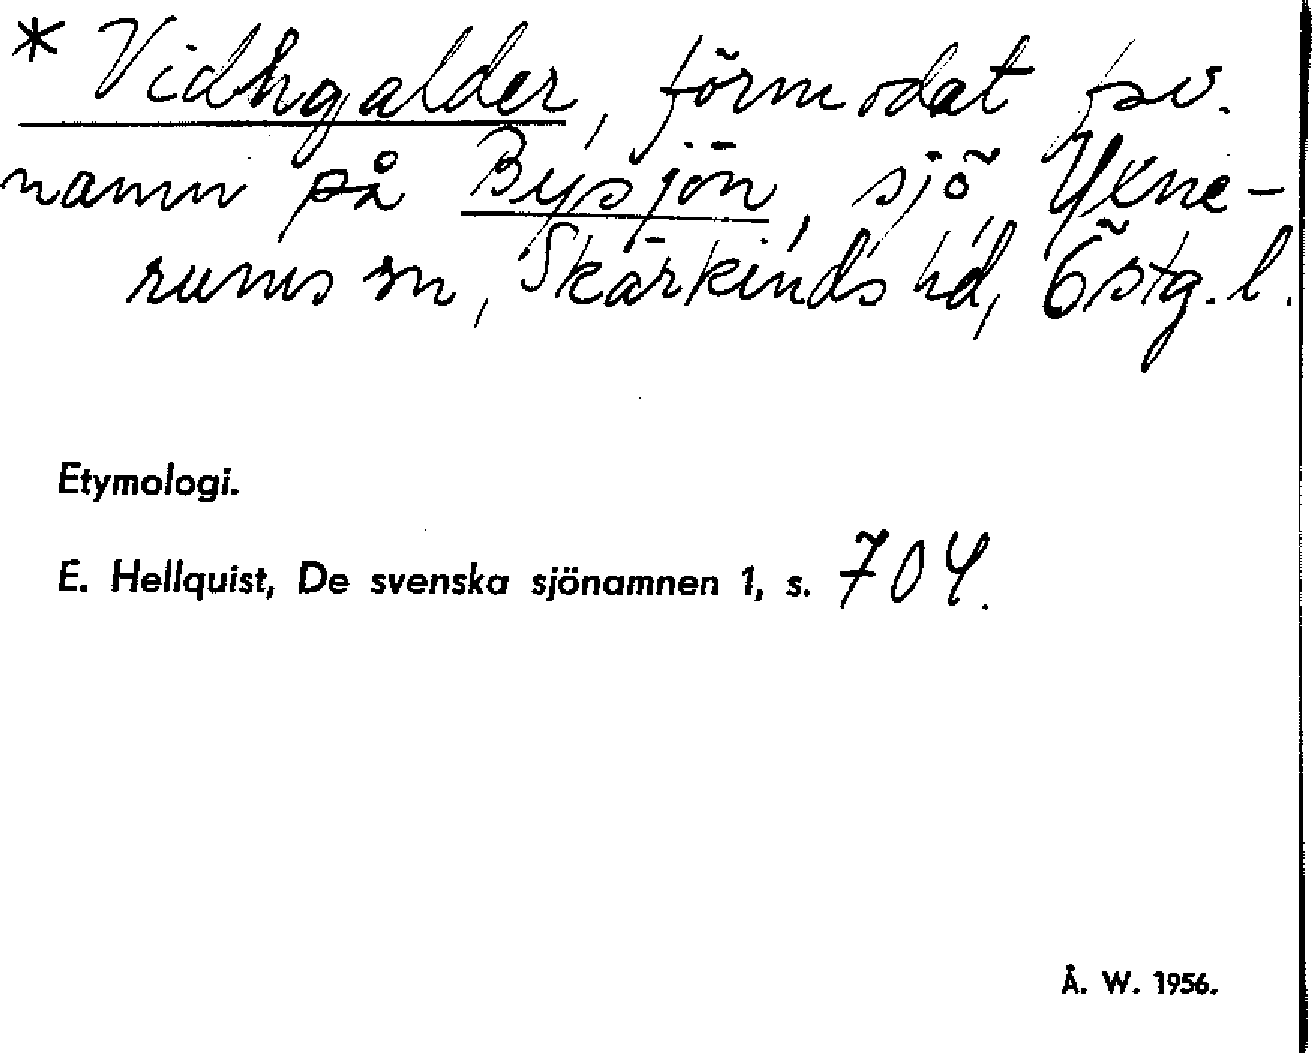 * Vidhgalder, förmodat fsv.
namn på Bysjön, sjö Yxne-
rums sn, Skärkinds hd, Östg. l.
Etymologi.
E. Hellquist, De svenska sjönamnen 1, s. 704.
Å. W. 1956.